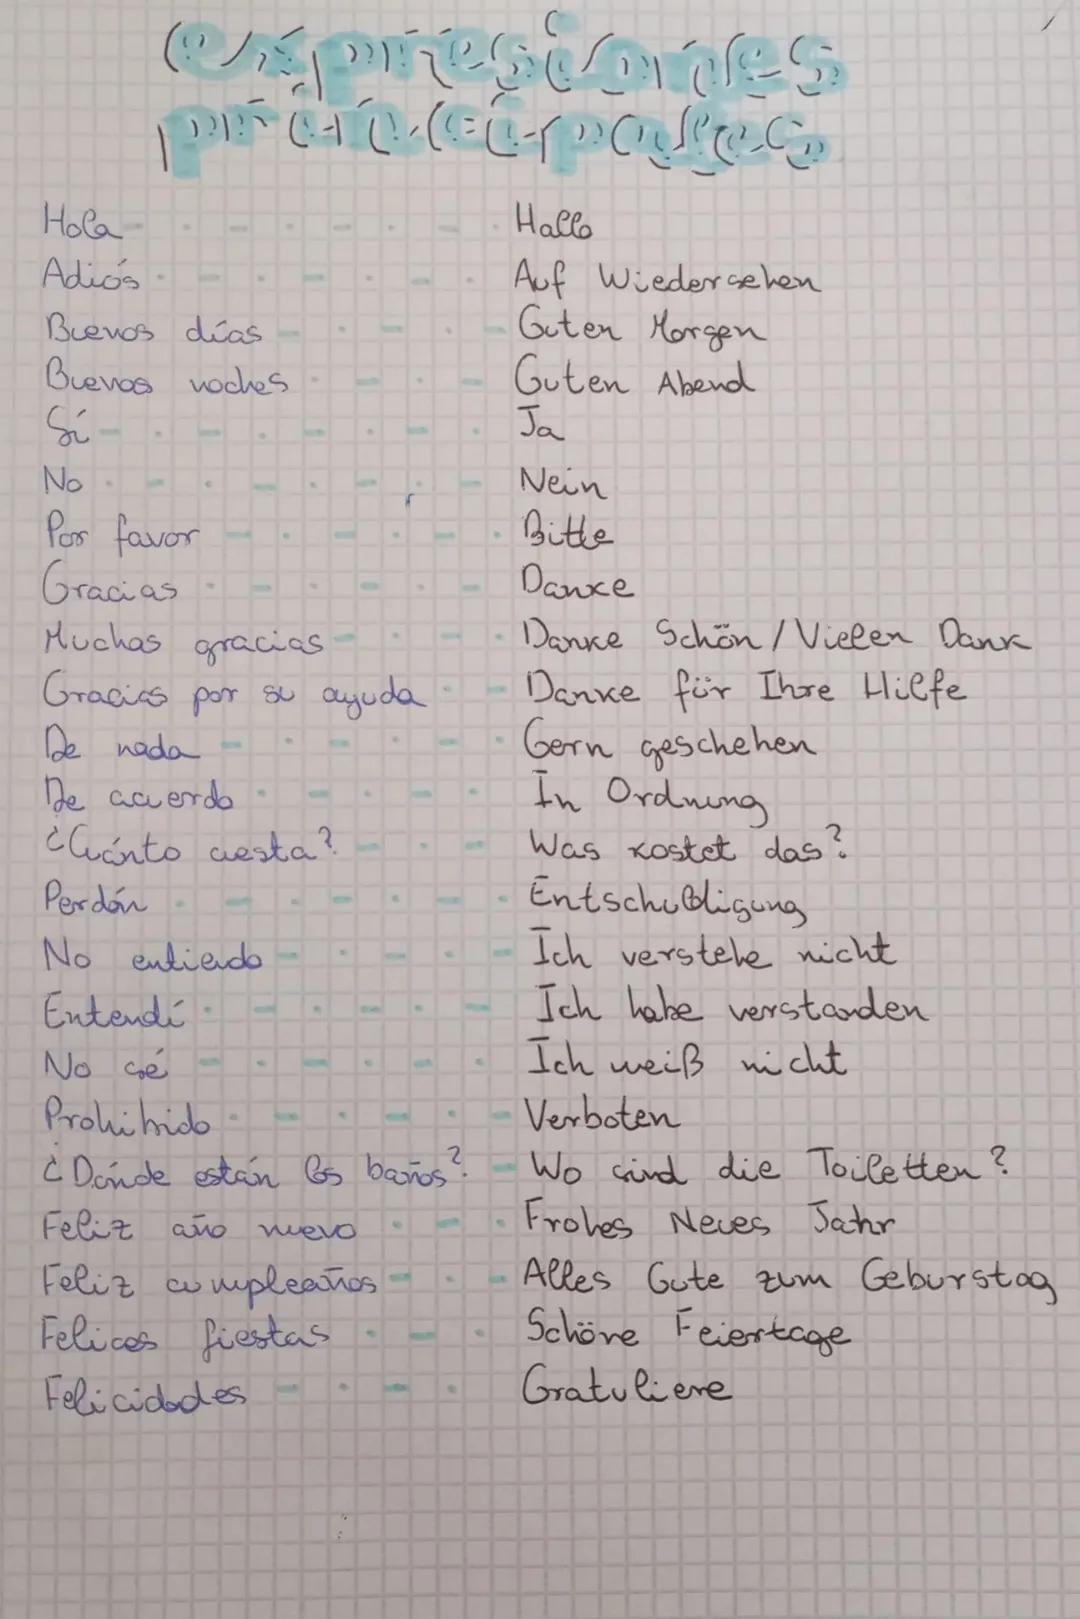 expresiones
principales
Hola - Hallo
Adiós - Auf Wiedersehen
Buenos días - Guten Morgen
Buenas noches - Guten Abend
Sí - Ja
No - Nein
Por favor - Bitte
Gracias - Danke
Muchas gracias - Danke Schön / Vielen Dank
Gracias por su ayuda - Danke für Ihre Hilfe
De nada - Gern geschehen
De acuerdo - In Ordnung
¿Cuánto cuesta? - Was kostet das?
Perdón - Entschuldigung
No entiendo - Ich verstehe nicht
Entendí - Ich habe verstanden
No sé - Ich weiß nicht
Prohibido - Verboten
¿Dónde están los baños? - Wo sind die Toiletten?
Feliz año nuevo - Frohes Neues Jahr
Feliz cumpleaños - Alles Gute zum Geburstag
Felices fiestas - Schöne Feiertage
Felicidades - Gratuliere